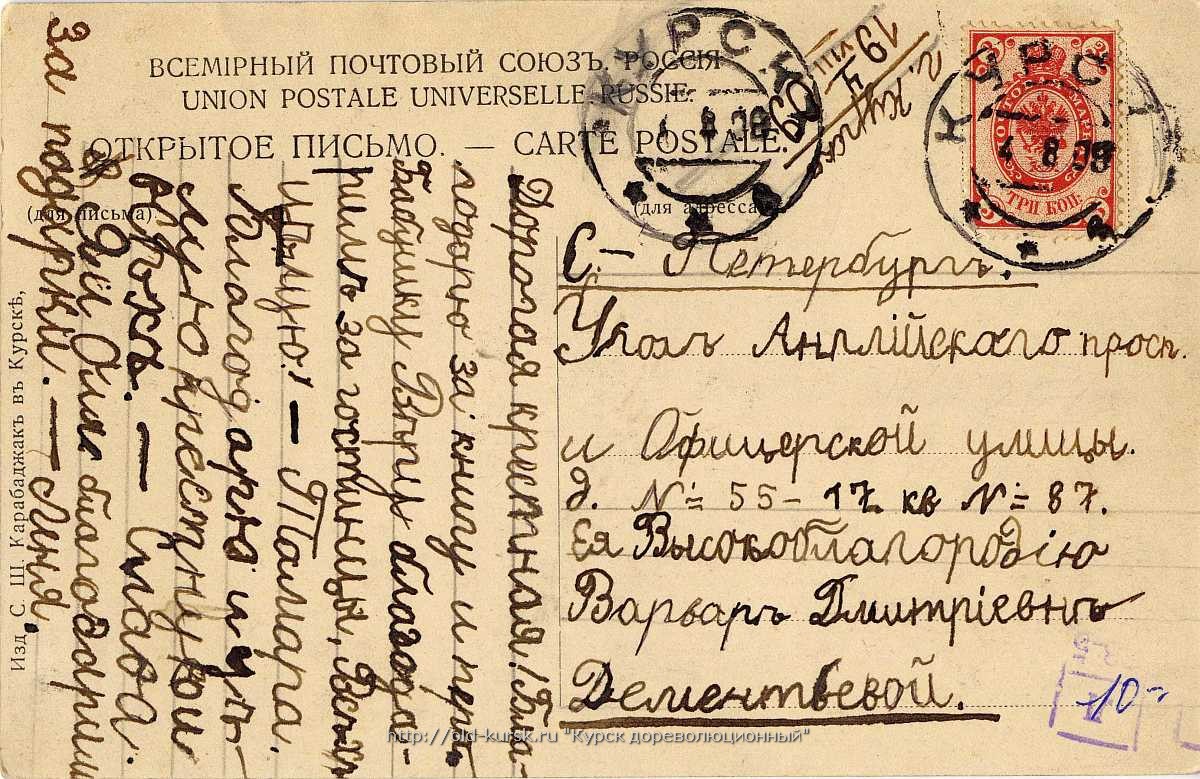 ВСЕМІРНЫЙ ПОЧТОВЫЙ СОЮЗЪ. РОССІЯ
UNION POSTALE UNIVERSELLE RUSSIE.
ОТКРЫТОЕ ПИСЬМО. — CARTE POSTALE.
(для письма)
(для адресса)
КУРСКЪ
4 8 09
КУРСКЪ
4 8
ТРИ КОП.
г. Курскъ
19 4/VIII 09
С.- Петербургъ.
Уголъ Англійскаго просп.
и Офицерской улицы.
д. № 55-17 кв № 87.
Ея Высокоблагородію
Варваръ Дмитріевнъ
Дементьевой.
Дорогая крестная! Бла-
годарю за книгу и
Бабушку Вѣру благода-
римъ за гостинцы, Всѣхъ
цѣлую! — Тамара.
Благодарю и цѣ-
лую крестну
всѣхъ. — Слава.
Оля благодарим
за подарки. — Леня.
Изд. С. Ш. Карабаджакъ въ Курскѣ.
10-
http://old-kursk.ru "Курск дореволюционный"